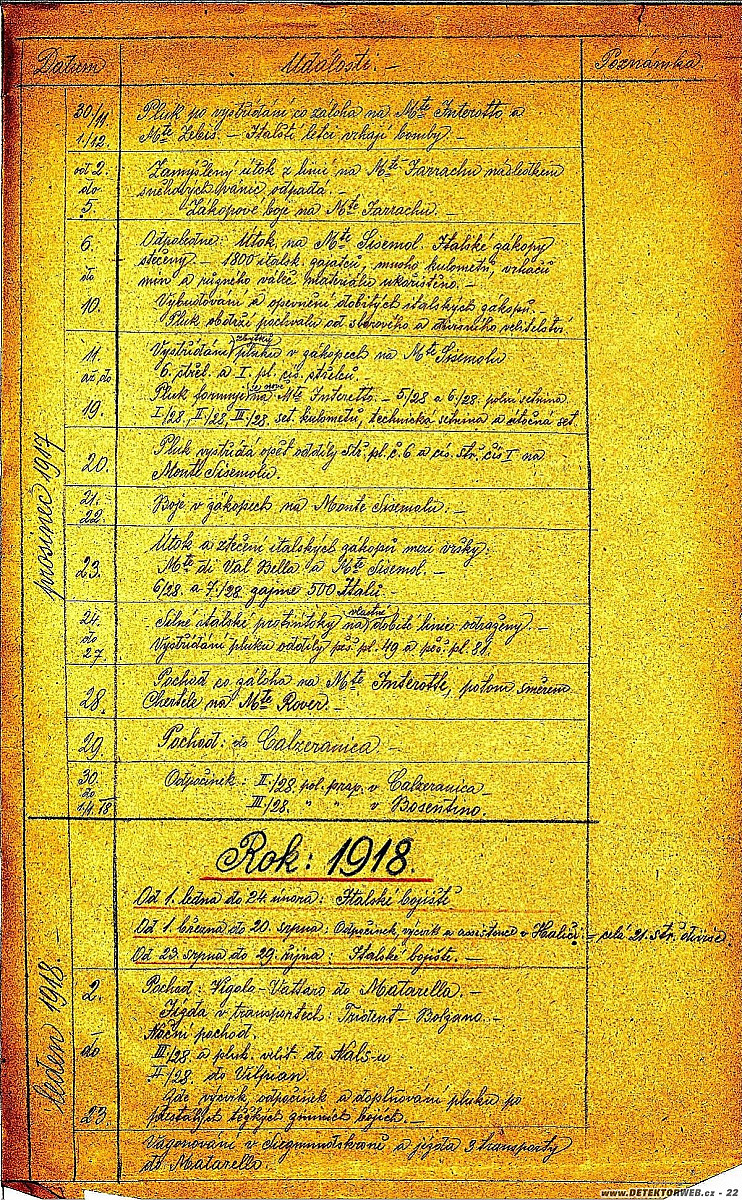 Datum Události.— Poznámka.
30/11 Pluk po vystřídání co záloha na Mte Interotto a
1/12. Mte Zebio. — Italští letci vrhají bomby.—
od 2. Zamýšlený útok z linií na Mte Zarrachu následkem
do sněhových vánic odpadá.—
5. Zákopové boje na Mte Zarrachu.—
6. Odpoledne: Útok na Mte Sisemol. Italské zákopy
do ztečeny.— 1800 italsk. zajatců, mnoho kulometů, vrhačů
min a různého válečn. materiálu ukořistěno.—
10. Vybudování a opevnění dobitých italských zákopů.—
Pluk obdrží pochvalu od sborového a divisního velitelství.
11. Vystřídání zbytků pluku v zákopech na Mte Sisemolu
až do 6. střel. a I. pl. cís. střelců.
Pluk formuje na Mte Interotto.— 5/28 a 6/28. polní setnina
19. I/28., II/28, III/28. set. kulometů, technická setnina a útočná set.
prosinec 1917
20. Pluk vystřídá opět oddíly stř. pl. č. 6 a cís. stř. čís I na
Monte Sisemolu.
21. Boje v zákopech na Monte Sisemolu.—
22.
Útok a ztečení italských zákopů mezi vršky:
23. Mte di Val Bella a Mte Sisemol.—
6/28 a 7/28. zajme 500 Italů—
24. Silné italské protiútoky na vlastné dobité linie odraženy.—
do Vystřídání pluku oddíly pěš. pl. 49 a pěš. pl. 81.
27.
Pochod co záloha na Mte Interotto, potom směrem
28. Ghertele na Mte Rover.—
29. Pochod: do Calzeranica—
30. Odpočinek: II/28. pol. prap. v Calzeranica—
do III/28. " " v Bosentino.
1/1.18.
Rok: 1918.
Od 1. ledna do 24. února: Italské bojiště
Od 1. března do 20. srpna: Odpočinek, výcvik a assistence v Haliči — celé 21. stř. divise.
Od 23. srpna do 29. října: Italské bojiště.—
leden 1918.—
2. Pochod: Vigolo-Vattaro do Matarella.—
Jízda v transportech: Trident—Bolzano.—
— Noční pochod.
do III/28. a pluk. velit. do Nals-u
II/28. do Vilpian.
Zde výcvik, odpočinek a doplňování pluku po
23. přestálých těžkých zimních bojích.—
Vagonování v Siegmundskroně a jízda 3 transporty
do Matarella.
www.DETEKTORWEB.cz - 22